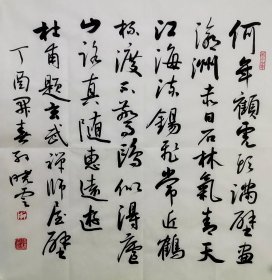 何年顧虎頭滿壁畫
瀛洲赤日石林氣青天
江海流錫飛常近鶴
杯渡不驚鷗似得廬
山路真隨惠遠遊
杜甫題玄武禪師屋壁
丁酉春孙晓云